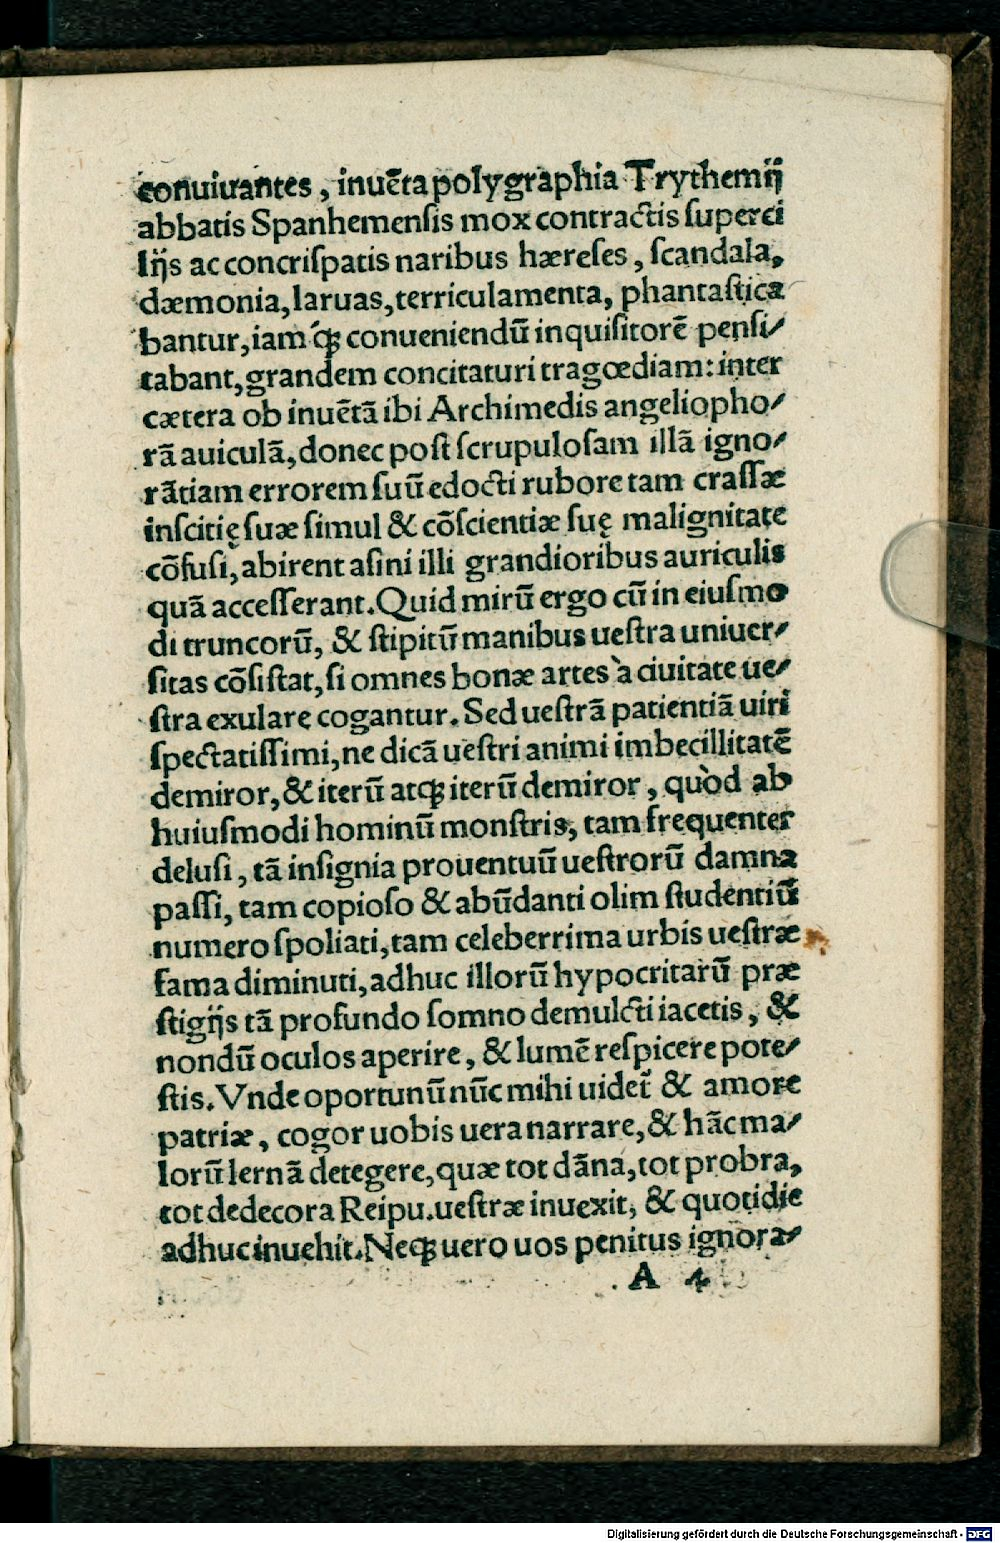 conuiuantes, inuẽta polygraphia Trythemij
abbatis Spanhemensis mox contractis superci
lijs ac concrispatis naribus hæreses, scandala,
dæmonia, laruas, terriculamenta, phantastica
bantur, iam q́ꝫ conueniendũ inquisitorẽ pensi⸗
tabant, grandem concitaturi tragœdiam: inter
cætera ob inuẽtã ibi Archimedis angeliopho⸗
rã auiculã, donec post scrupulosam illã igno⸗
rãtiam errorem suũ edocti rubore tam crassæ
inscitię suæ simul & cõscientiæ suę malignitate
cõfusi, abirent asini illi grandioribus auriculis
quã accesserant. Quid mirũ ergo cũ in eiusmo
di truncorũ, & stipitũ manibus uestra uniuer⸗
sitas cõsistat, si omnes bonæ artes à ciuitate ue⸗
stra exulare cogantur. Sed uestrã patientiã uiri
spectatissimi, ne dicã uestri animi imbecillitatẽ
demiror, & iterũ atqꝫ iterũ demiror, quòd ab
huiusmodi hominũ monstris, tam frequenter
delusi, tã insignia prouentuũ uestrorũ damna
passi, tam copioso & abũdanti olim studentiũ
numero spoliati, tam celeberrima urbis uestræ
fama diminuti, adhuc illorũ hypocritarũ præ
stigijs tã profundo somno demulcti iacetis, &
nondũ oculos aperire, & lumẽ respicere pote⸗
stis. Vnde oportunũ nũc mihi uidet̃ & amore
patriæ, cogor uobis uera narrare, & hãc ma⸗
lorũ lernã detegere, quæ tot dãna, tot probra,
tot dedecora Reipu. uestræ inuexit, & quotidie
adhuc inuehit. Neqꝫ uero uos penitus ignora⸗
A 4
Digitalisierung gefördert durch die Deutsche Forschungsgemeinschaft - DFG